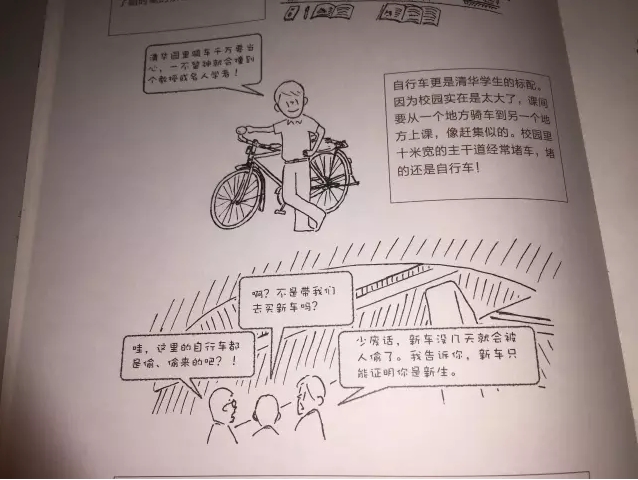 清华园里骑车千万要当
心，一不留神就会撞到
个教授或名人学者！
自行车更是清华学生的标配。
因为校园实在是太大了，课间
要从一个地方骑车到另一个地
方上课，像赶集似的。校园里
十米宽的主干道经常堵车，堵
的还是自行车！
啊？不是带我们
去买新车吗？
哇，这里的自行车都
是偷、偷来的吧？！
少废话，新车没几天就会被
人偷了。我告诉你，新车只
能证明你是新生。